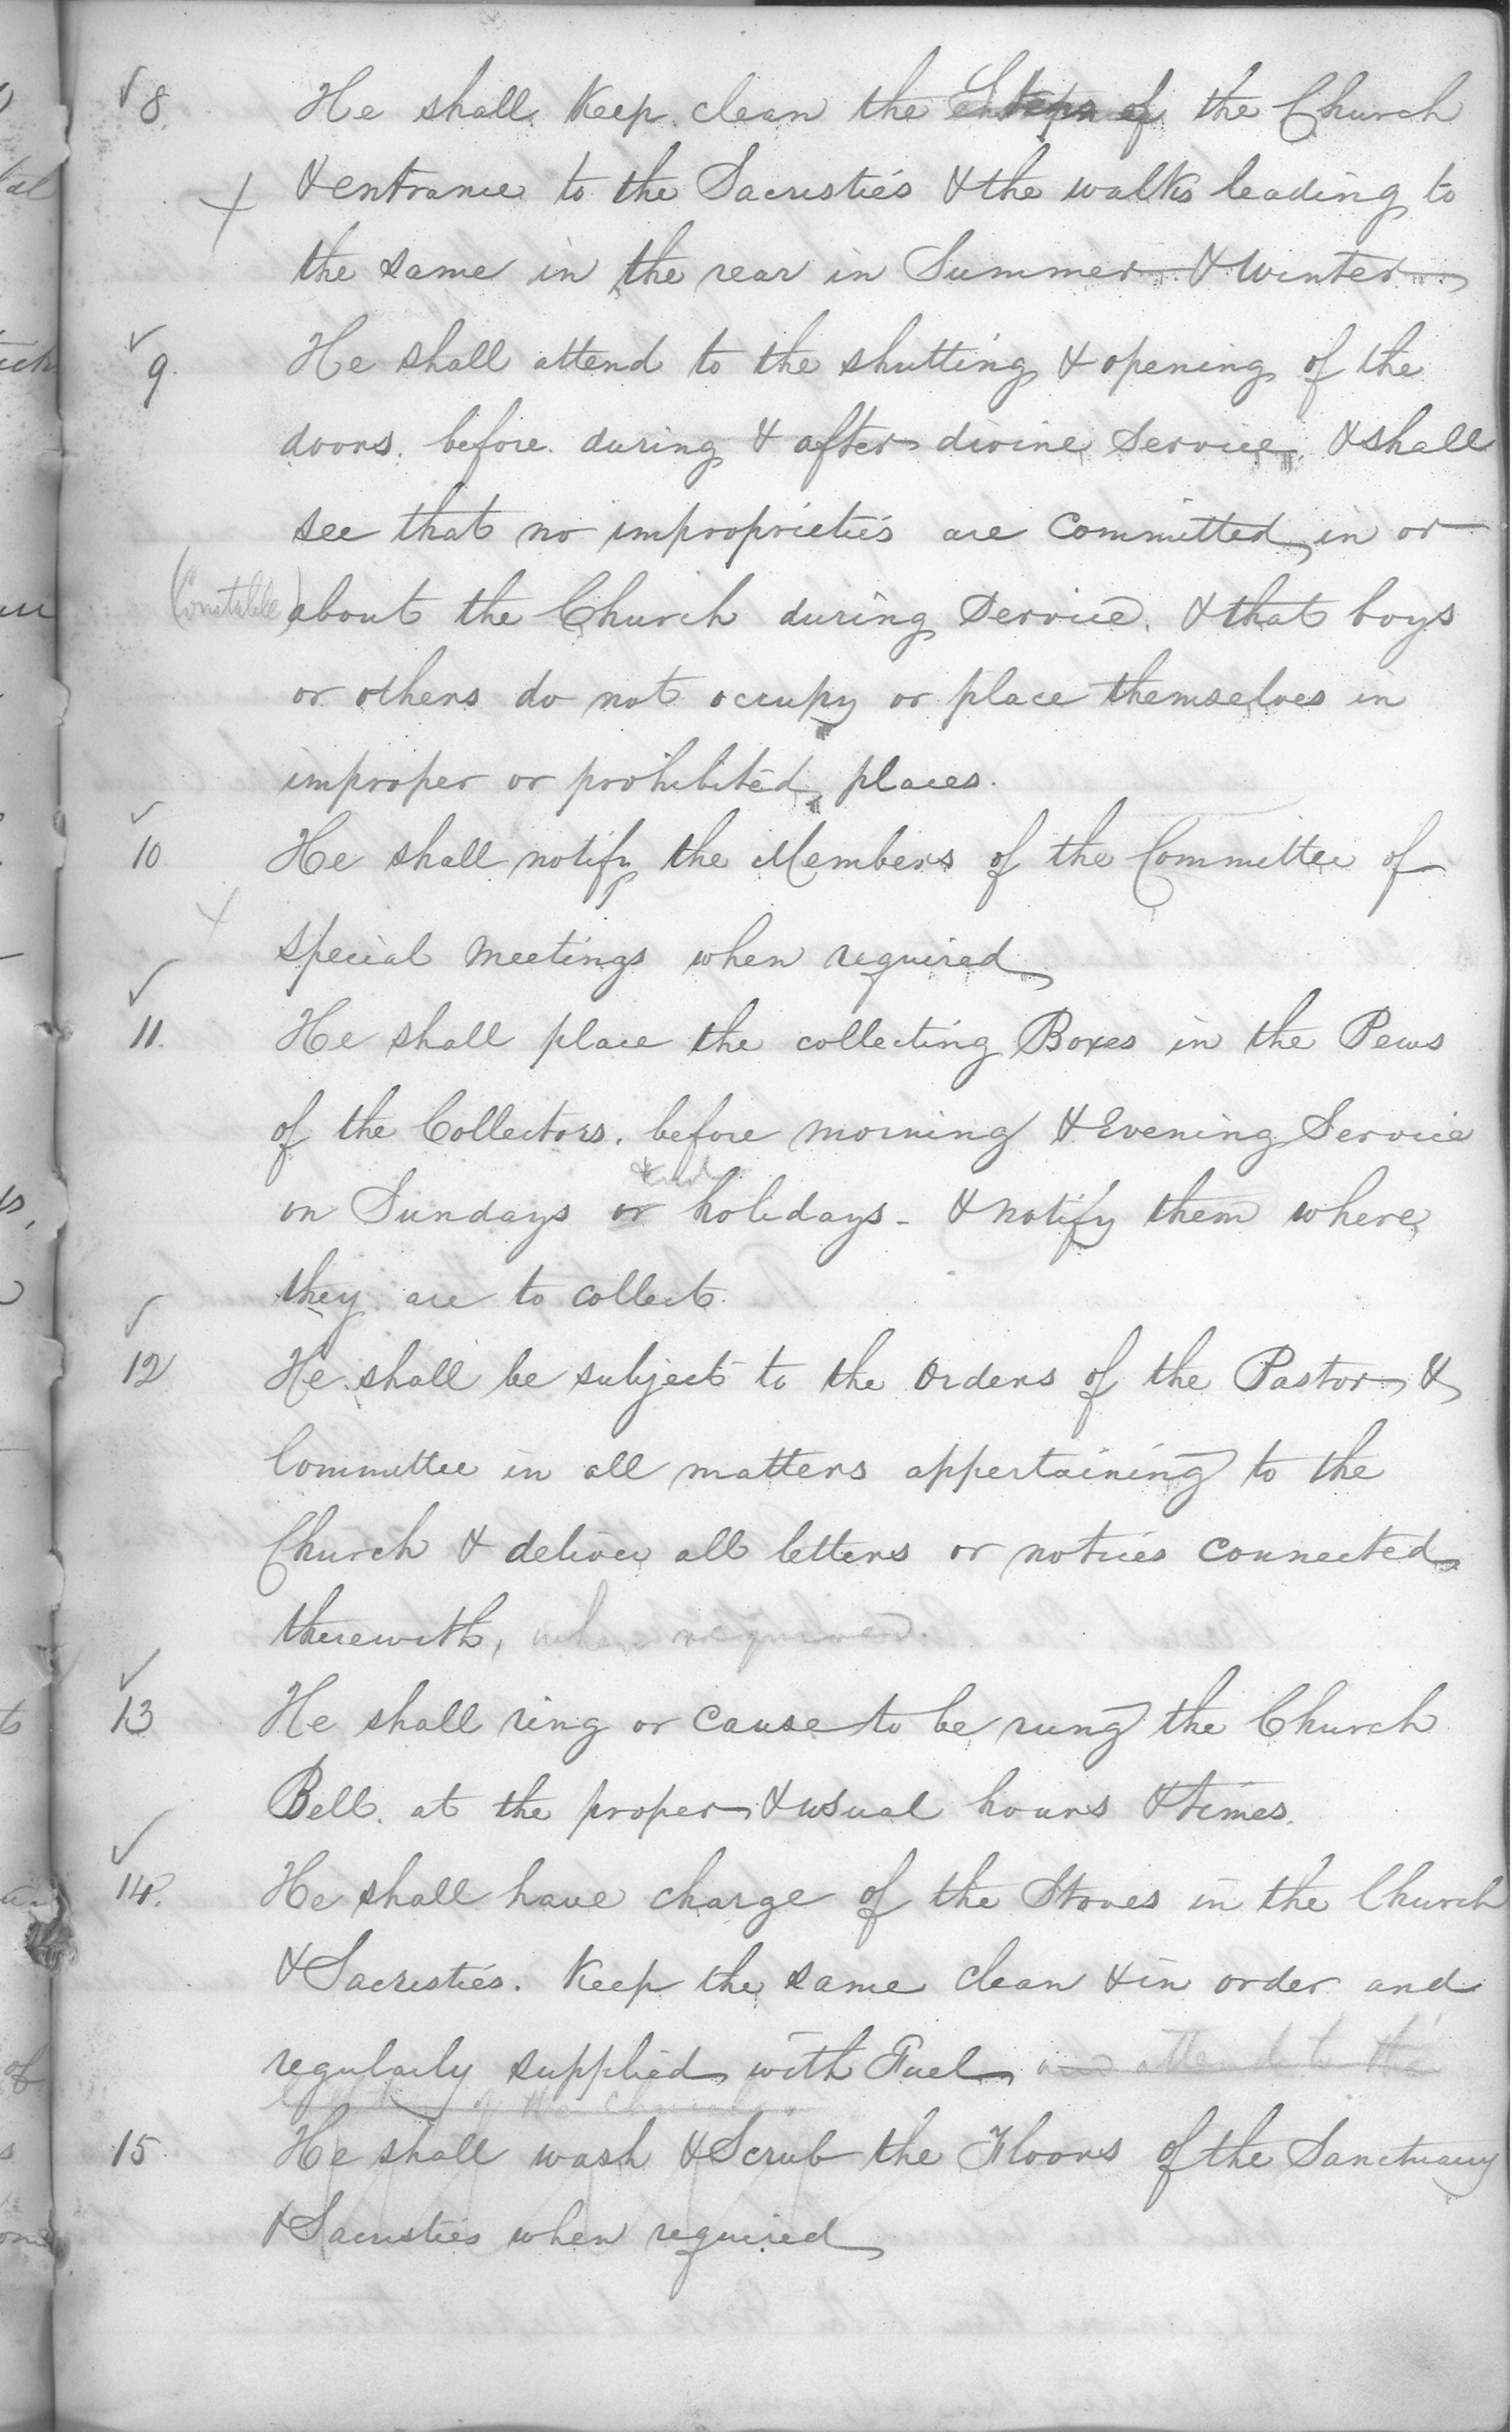 8. He shall Keep clean the Steps of the Church
& entrance to the Sacristies & the walks leading to
the same in the rear in Summer & Winter
9. He shall attend to the shutting & opening of the
doors. before. during & after divine Service. & shall
see that no improprieties are committed in or
(Constable) about the Church during Service. & that boys
or others do not occupy or place themselves in
improper or prohibited places.
10 He shall notify the Members of the Committee of
special meetings when required
11. He shall place the collecting Boxes in the Pews
of the Collectors. before morning & Evening Service
and
on Sundays or holidays - & notify them where
they are to collect.
12 He shall be subject to the orders of the Pastor &
Committee in all matters appertaining to the
Church & deliver all letters or notices connected
therewith, when required.
13 He shall ring or cause to be rung the Church
Bell. at the proper & usual hours & times.
14. He shall have charge of the Stoves in the Church
& Sacristies. Keep the same clean & in order and
regularly supplied with Fuel and attend to the
of the Church
15. He shall wash & Scrub the Floors of the Sanctuary
& Sacristies when required